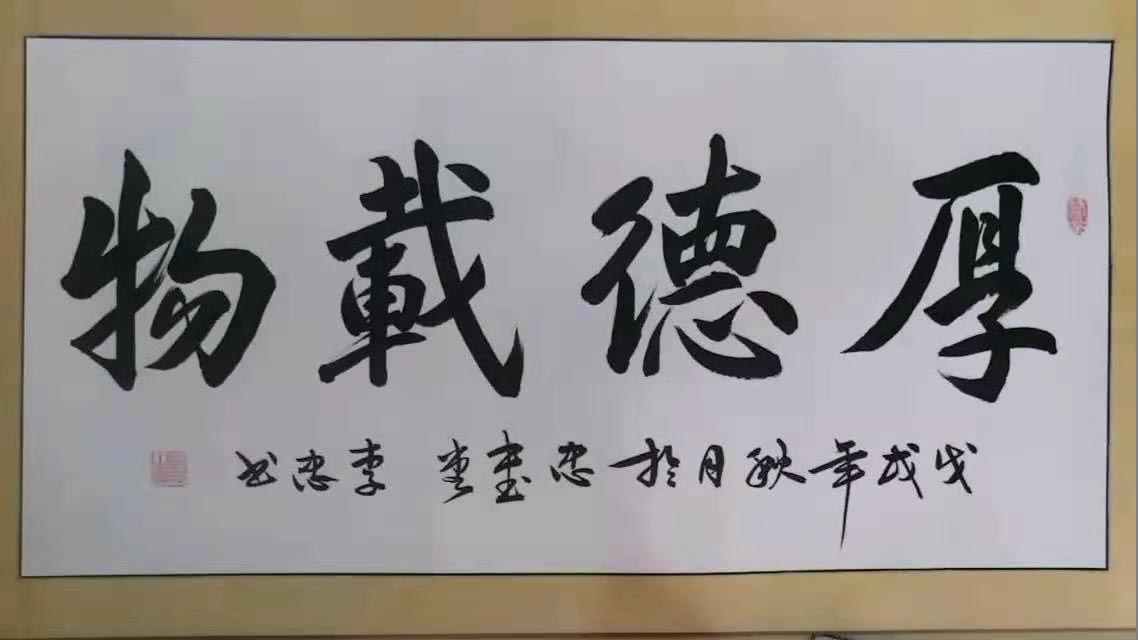 厚德載物
戊戌年秋月於忠書堂李忠书